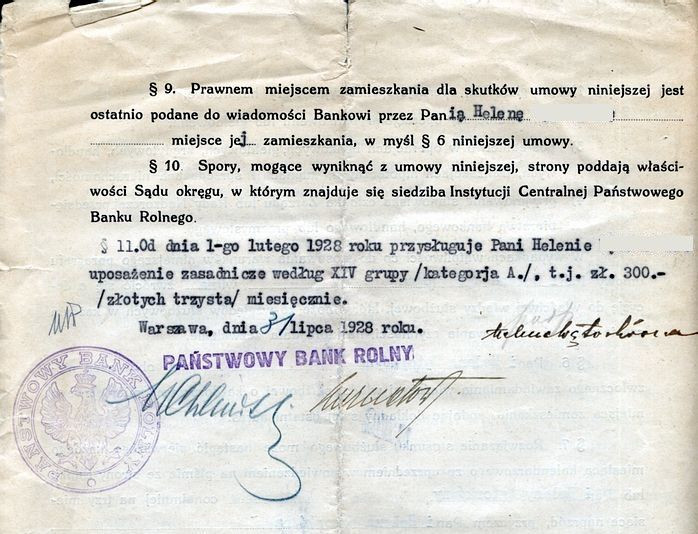 § 9. Prawnem miejscem zamieszkania dla skutków umowy niniejszej jest
ostatnio podane do wiadomości Bankowi przez Panią Helenę
miejsce jej zamieszkania, w myśl § 6 niniejszej umowy.
§ 10. Spory, mogące wyniknąć z umowy niniejszej, strony poddają właści-
wości Sądu okręgu, w którym znajduje się siedziba Instytucji Centralnej Państwowego
Banku Rolnego.
§ 11.Od dnia 1-go lutego 1928 roku przysługuje Pani Helenie
uposażenie zasadnicze według XIV grupy /kategorja A./, t.j. zł. 300.-
/złotych trzysta/ miesięcznie.
Warszawa, dnia 31 lipca 1928 roku.
PAŃSTWOWY BANK ROLNY
PAŃSTWOWY BANK ROLNY